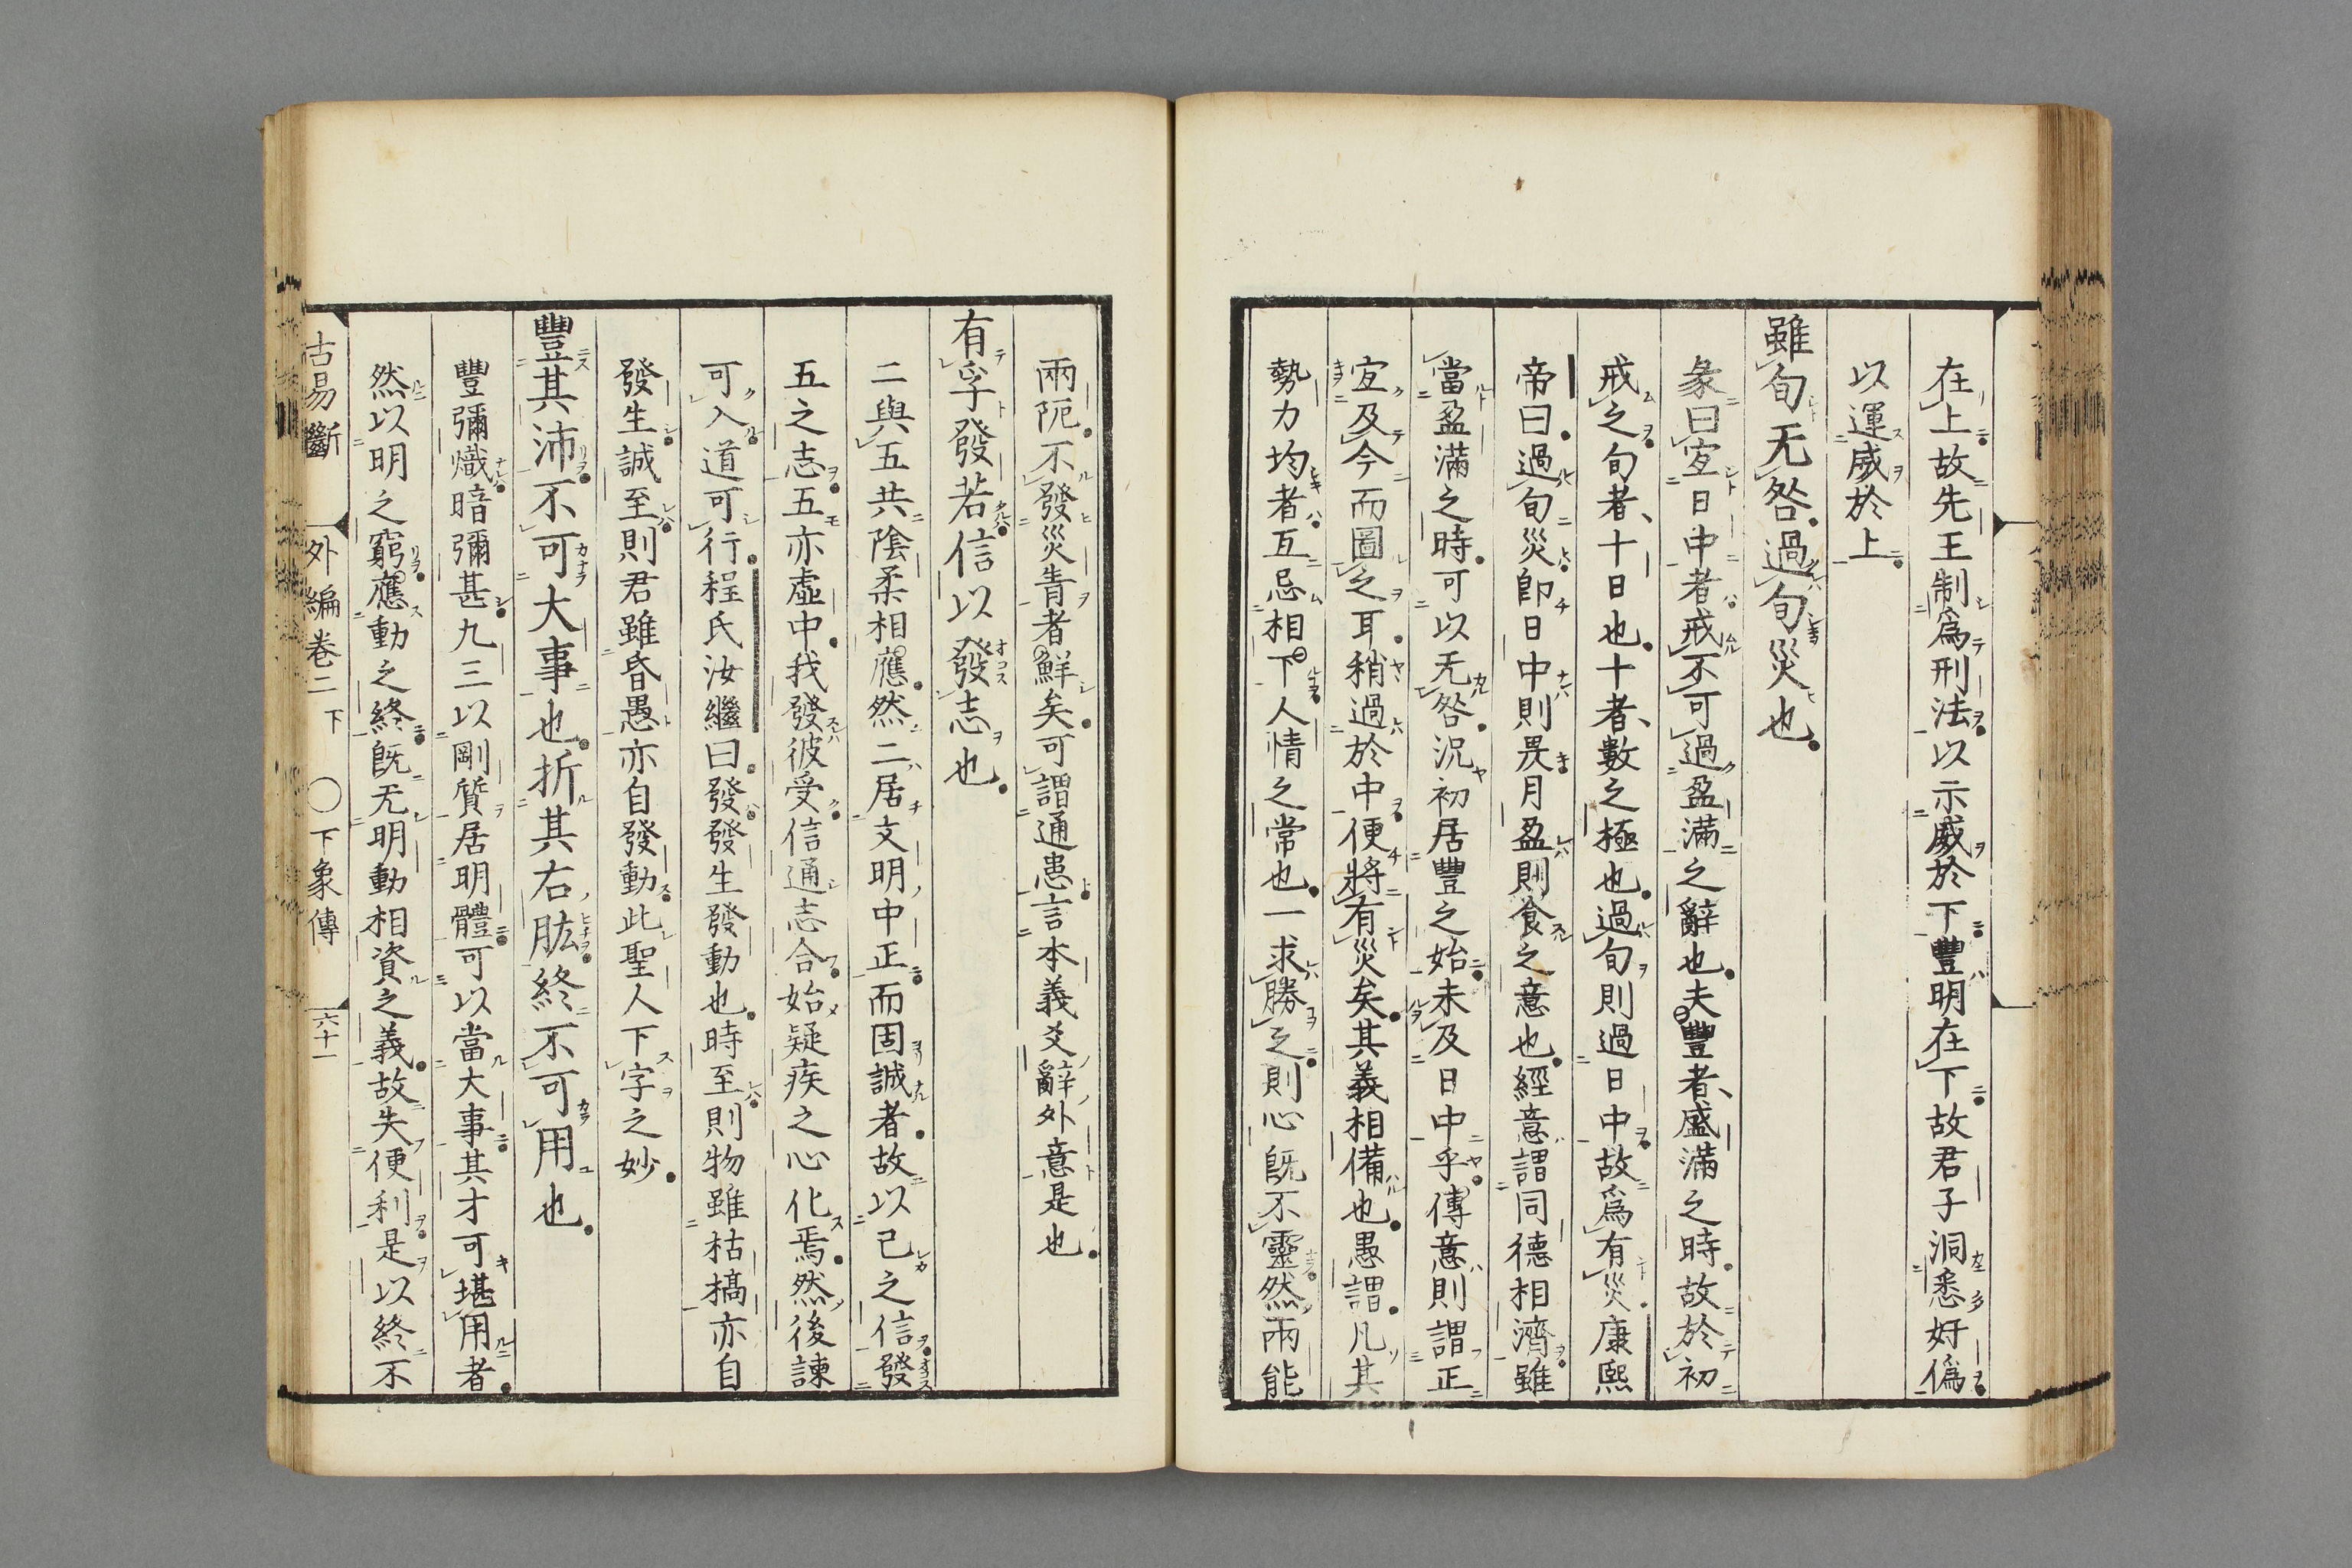 在上故先王制爲刑法以示威於下豐明在下故君子洞悉好僞
以運威於上
雖旬无咎過旬災也
彖曰宐日中者戒不可過盈滿之辭也夫豐者盛滿之時故於初
戒之旬者十日也十者數之極也過旬則過日中故爲有災康熙
帝曰過旬災卽日中則昃月盈則食之意也經意謂同德相濟雖
當盈滿之時可以无咎況初居豐之始未及日中乎傳意則謂正
宐及今而圖之耳稍過於中便將有災矣其義相備也愚謂凡其
勢力均者互忌相下人情之常也一求勝之則心旣不靈然兩能
兩阨不發災眚者鮮矣可謂通患言本義爻辭外意是也
有孚發若信以發志也
二與五共陰柔相應然二居文明中正而固誠者故以己之信發
五之志五亦虛中我發彼受信通志合始疑疾之心化焉然後諫
可入道可行程氏汝繼曰發發生發動也時至則物雖枯槁亦自
發生誠至則君雖昏愚亦自發動此聖人下字之妙
豐其沛不可大事也折其右肱終不可用也
豐彌熾暗彌甚九三以剛質居明體可以當大事其才可堪用者
然以明之窮應動之終旣无明動相資之義故失便利是以終不
古易斷 外編卷二下 ○下象傳 六十一